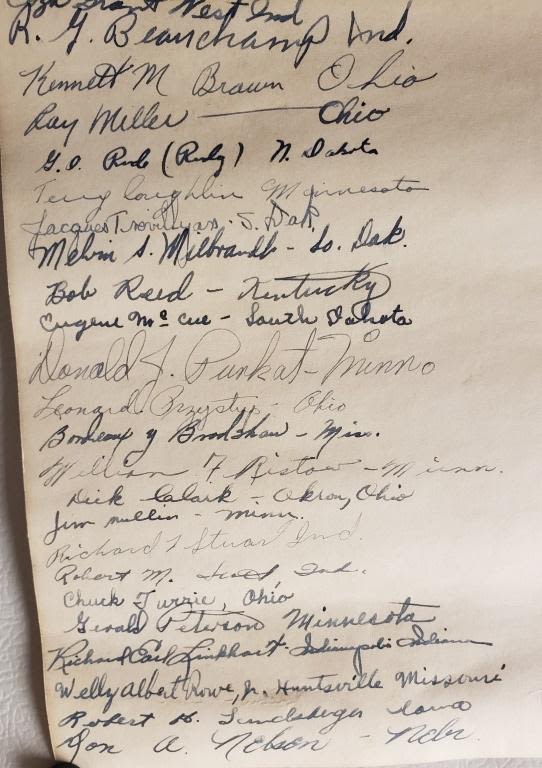 Grant West Ind
R. G. Beauchamp Ind.
Kenneth M Brown Ohio
Ray Miller — Ohio
G.O. Rub (Rudy) N. Dakota
Terry Coughlin Minnesota
Jacques S. Dak.
Melvin S. Milbrandt - So. Dak.
Bob Reed - Kentucky
Eugene McCue - South Dakota
Donald J. Punkat - Minn
Leonard Przystup - Ohio
Bordeaux y Bradshaw - Miss.
William F Ristow - Minn.
Dick Clark - Akron, Ohio
Jim Mullin - Minn.
Richard Stuar Ind.
Robert M. Ind.
Chuck Turrie, Ohio
Gerald Peterson Minnesota
Richard Earl Linkhart - Indianapolis Indiana
Welly Albert Rowe, Jr. Huntsville Missouri
Robert H. Iowa
Don A. Nelson - Nebr.